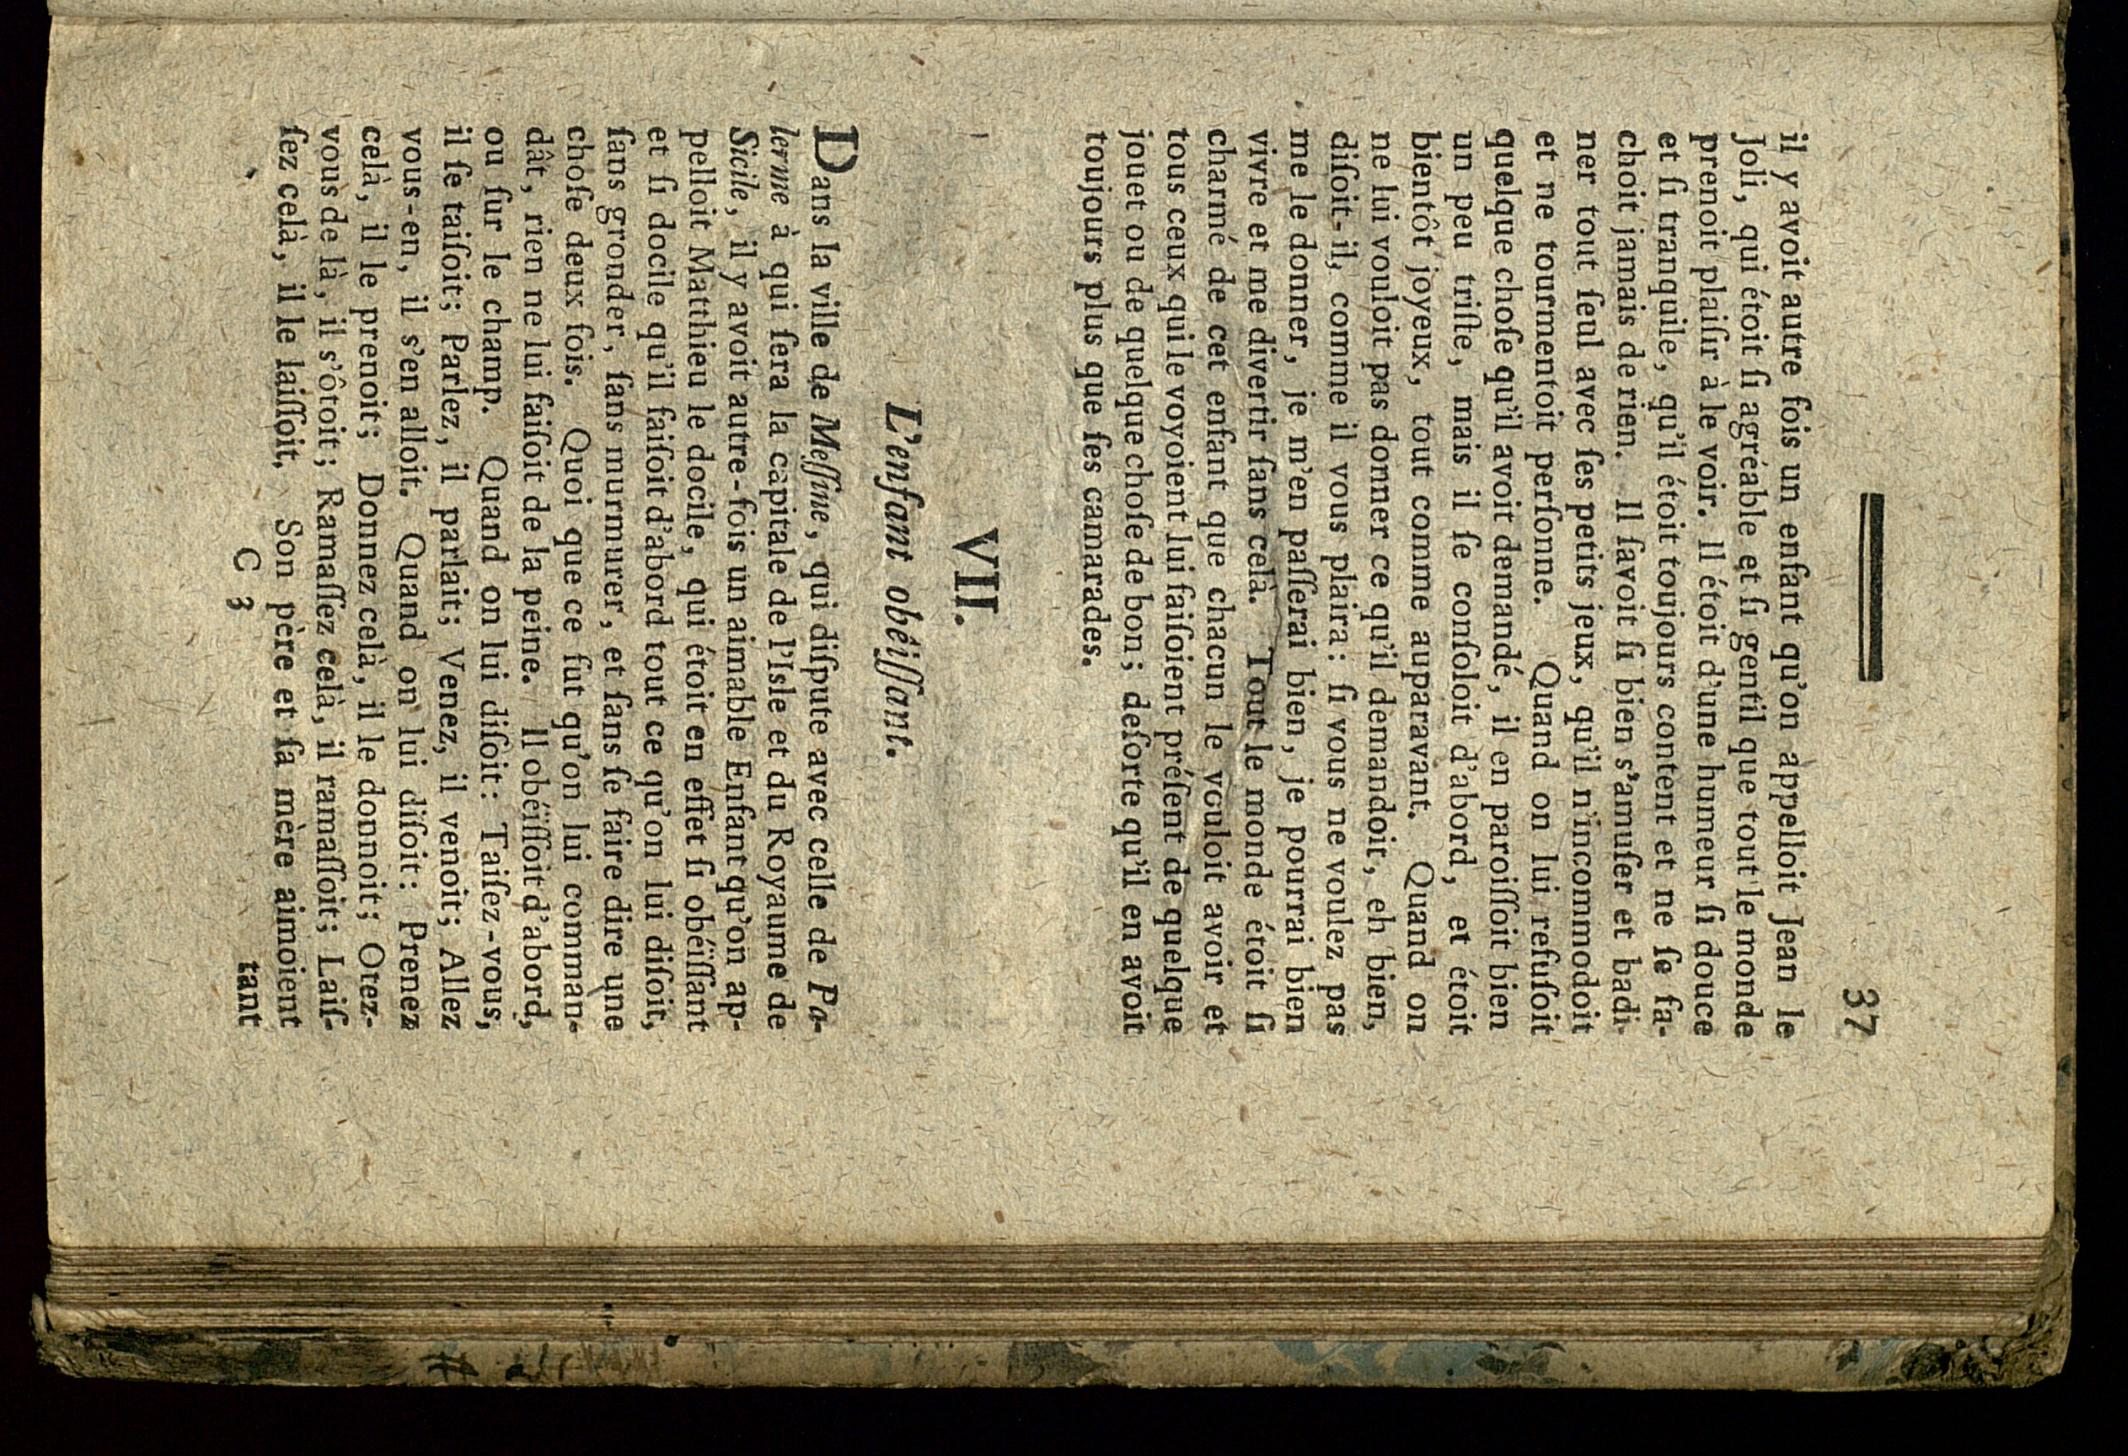 37
il y avoit autre fois un enfant qu'on appelloit Jean le
Joli, qui étoit ſi agréable et ſi gentil que tout le monde
prenoit plaiſir à le voir. Il étoit d'une humeur ſi douce
et ſi tranquile, qu'il étoit toujours content et ne ſe fa-
choit jamais de rien. Il ſavoit ſi bien s'amuſer et badi-
ner tout ſeul avec ſes petits jeux, qu'il n'incommodoit
et ne tourmentoit perſonne. Quand on lui refuſoit
quelque choſe qu'il avoit demandé, il en paroiſſoit bien
un peu triſte, mais il ſe conſoloit d'abord, et étoit
bientôt joyeux, tout comme auparavant. Quand on
ne lui vouloit pas donner ce qu'il demandoit, eh bien,
diſoit-il, comme il vous plaira: ſi vous ne voulez pas
me le donner, je m'en paſſerai bien, je pourrai bien
vivre et me divertir ſans celà. Tout le monde étoit ſi
charmé de cet enfant que chacun le vouloit avoir et
tous ceux qui le voyoient lui faiſoient préſent de quelque
jouet ou de quelque choſe de bon; deſorte qu'il en avoit
toujours plus que ſes camarades.
VII.
L'enfant obéiſſant.
Dans la ville de Meſſine, qui diſpute avec celle de Pa-
lerme à qui ſera la capitale de l'Isle et du Royaume de
Sicile, il y avoit autre-fois un aimable Enfant qu'on ap-
pelloit Matthieu le docile, qui étoit en effet ſi obéïſſant
et ſi docile qu'il faiſoit d'abord tout ce qu'on lui diſoit,
ſans gronder, ſans murmurer, et ſans ſe faire dire une
choſe deux fois. Quoi que ce fut qu'on lui comman-
dât, rien ne lui faiſoit de la peine. Il obéïſſoit d'abord,
ou ſur le champ. Quand on lui diſoit: Taiſez-vous,
il ſe taiſoit; Parlez, il parlait; Venez, il venoit; Allez
vous-en, il s'en alloit. Quand on lui diſoit: Prenez
celà, il le prenoit; Donnez celà, il le donnoit; Otez-
vous de là, il s'ôtoit; Ramaſſez celà, il ramaſſoit; Laiſ-
ſez celà, il le laiſſoit. Son père et ſa mère aimoient
C 3
tant